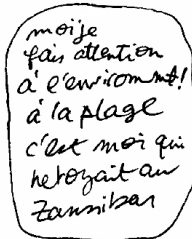 moi je
fais attention
à l'environnmt!
à la plage
c'est moi qui
netoyait au
Zannibar